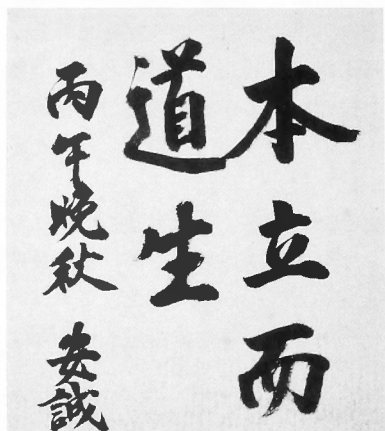 本立而
道生
丙午晩秋 安誠